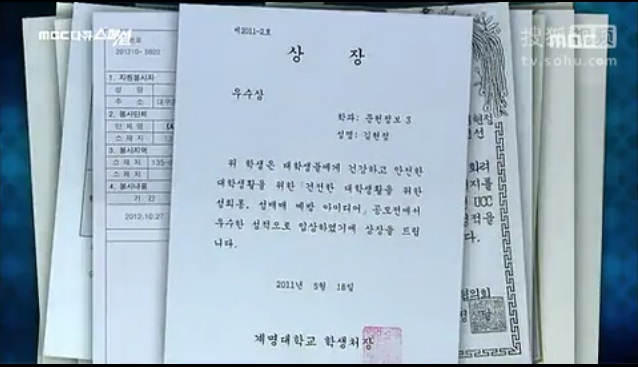 MBC 다큐스페셜
搜狐视频
tv.sohu.com
MBC
제2011-2호
상 장
우수상
학과: 문헌정보 3
성명: 김현정
위 학생은 대학생들에게 건강하고 안전한
대학생활을 위한 「건전한 대학생활을 위한
성희롱, 성매매 예방 아이디어」 공모전에서
우수한 성적으로 입상하였기에 상장을 드립
니다.
2011년 5월 18일
계명대학교 학생처장
201210-5802
1. 자원봉사자
성 명
주 소
2. 봉사단체
단 체 명
소 재 지
3. 봉사지역
소 재 지
4. 봉사내용
기 간
2012.10.27
UCC